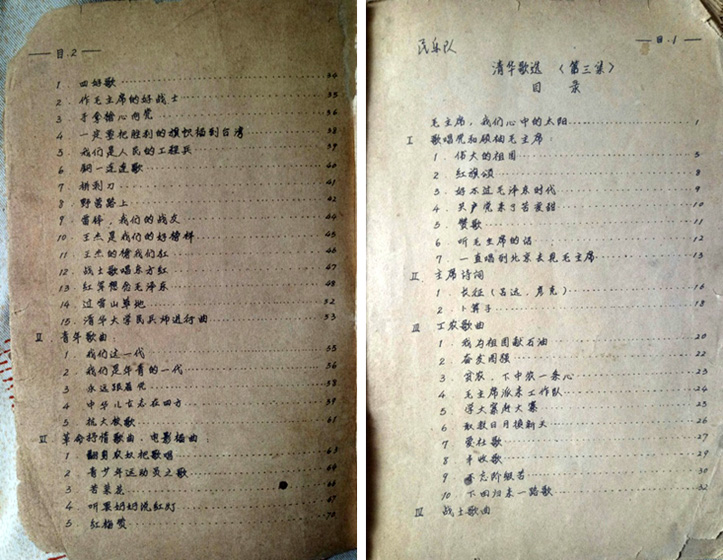 — 目.2 —
1 四好歌 ········ 34
2 作毛主席的好战士 ········ 35
3 手拿枪心向党 ········ 36
4 一定要把胜利的旗帜插到台湾 ········ 38
5 我们是人民的工程兵 ········ 39
6 钢一连连歌 ········ 40
7 拼刺刀 ········ 41
8 野营路上 ········ 42
9 雷锋,我们的战友 ········ 44
10 王杰是我们的好榜样 ········ 45
11 王杰的枪我们扛 ········ 46
12 战士歌唱东方红 ········ 47
13 红军想念毛泽东 ········ 48
14 过雪山草地 ········ 52
15. 清华大学民兵师进行曲 ········ 53
Ⅴ 青年歌曲:
1 我们这一代 ········ 55
2 我们是年青的一代 ········ 56
3 永远跟着党 ········ 58
4 中华儿女志在四方 ········ 59
5 抗大校歌 ········ 61
Ⅵ 革命抒情歌曲、电影插曲:
1 翻身农奴把歌唱 ········ 63
2 青少年运动员之歌 ········ 64
3 苦菜花 ········ 66
4 听罢奶奶说红灯 ········ 67
5 红梅赞 ········ 70
民乐队
— 目.1 —
清华歌选 〈第三集〉
目 录
毛主席,我们心中的太阳 ········ 1
Ⅰ 歌唱党和领袖毛主席:
1. 伟大的祖国 ········ 5
2. 红旗颂 ········ 8
3. 好不过毛泽东时代 ········ 9
4. 共产党来了苦变甜 ········ 10
5. 赞歌 ········ 11
6 听毛主席的话 ········ 12
7 一直唱到北京去见毛主席 ········ 13
Ⅱ 主席诗词
1. 长征(吕远、彦克) ········ 16
2. 卜算子 ········ 18
Ⅲ 工农歌曲
1. 我为祖国献石油 ········ 20
2. 奋发图强 ········ 22
3. 贫农、下中农一条心 ········ 23
4 毛主席派来工作队 ········ 24
5 学大寨赶大寨 ········ 25
6 敢教日月换新天 ········ 26
7 爱社歌 ········ 27
8 丰收歌 ········ 29
9 不忘阶级苦 ········ 30
10 下田归来一路歌 ········ 32
Ⅳ 战士歌曲